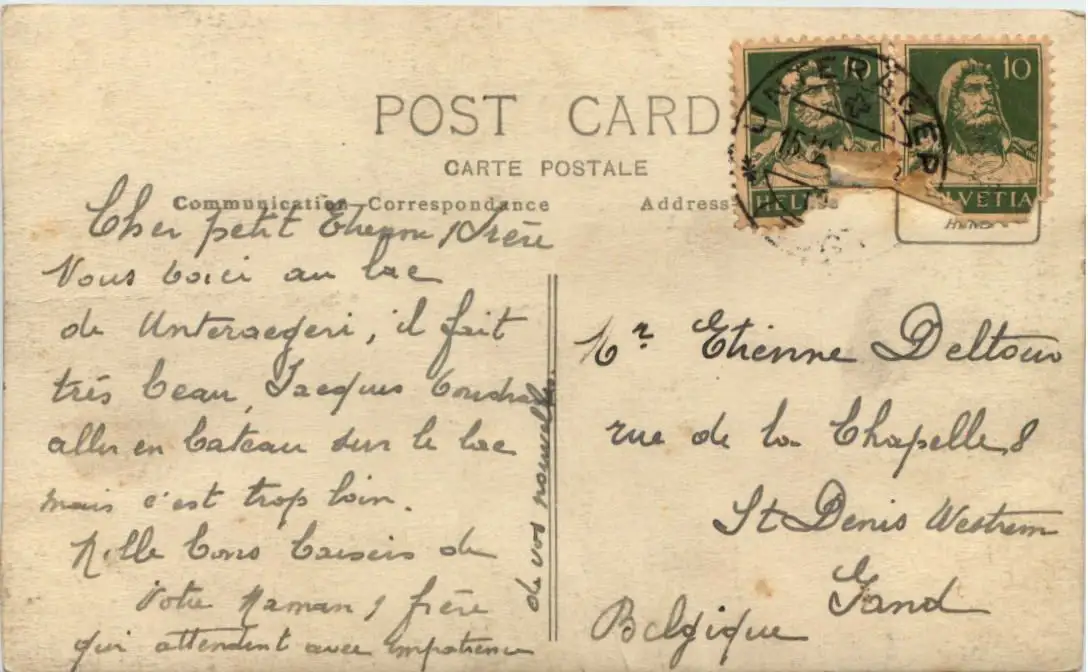 POST CARD
CARTE POSTALE
Communication-Correspondance
Address
10
10
HELVETIA
UNTERÄGERI
Cher petit Etienne, frère
Nous voici au lac
de Unteraegeri, il fait
très beau, Jacques voudrait
aller en bateau sur le lac
mais c'est trop loin.
Mille bons baisers de
Votre Maman, frère
qui attendent avec impatience
de vos nouvelles.
Mr Etienne Deltour
rue de la Chapelle 8
St Denis Westrem
Gand
Belgique